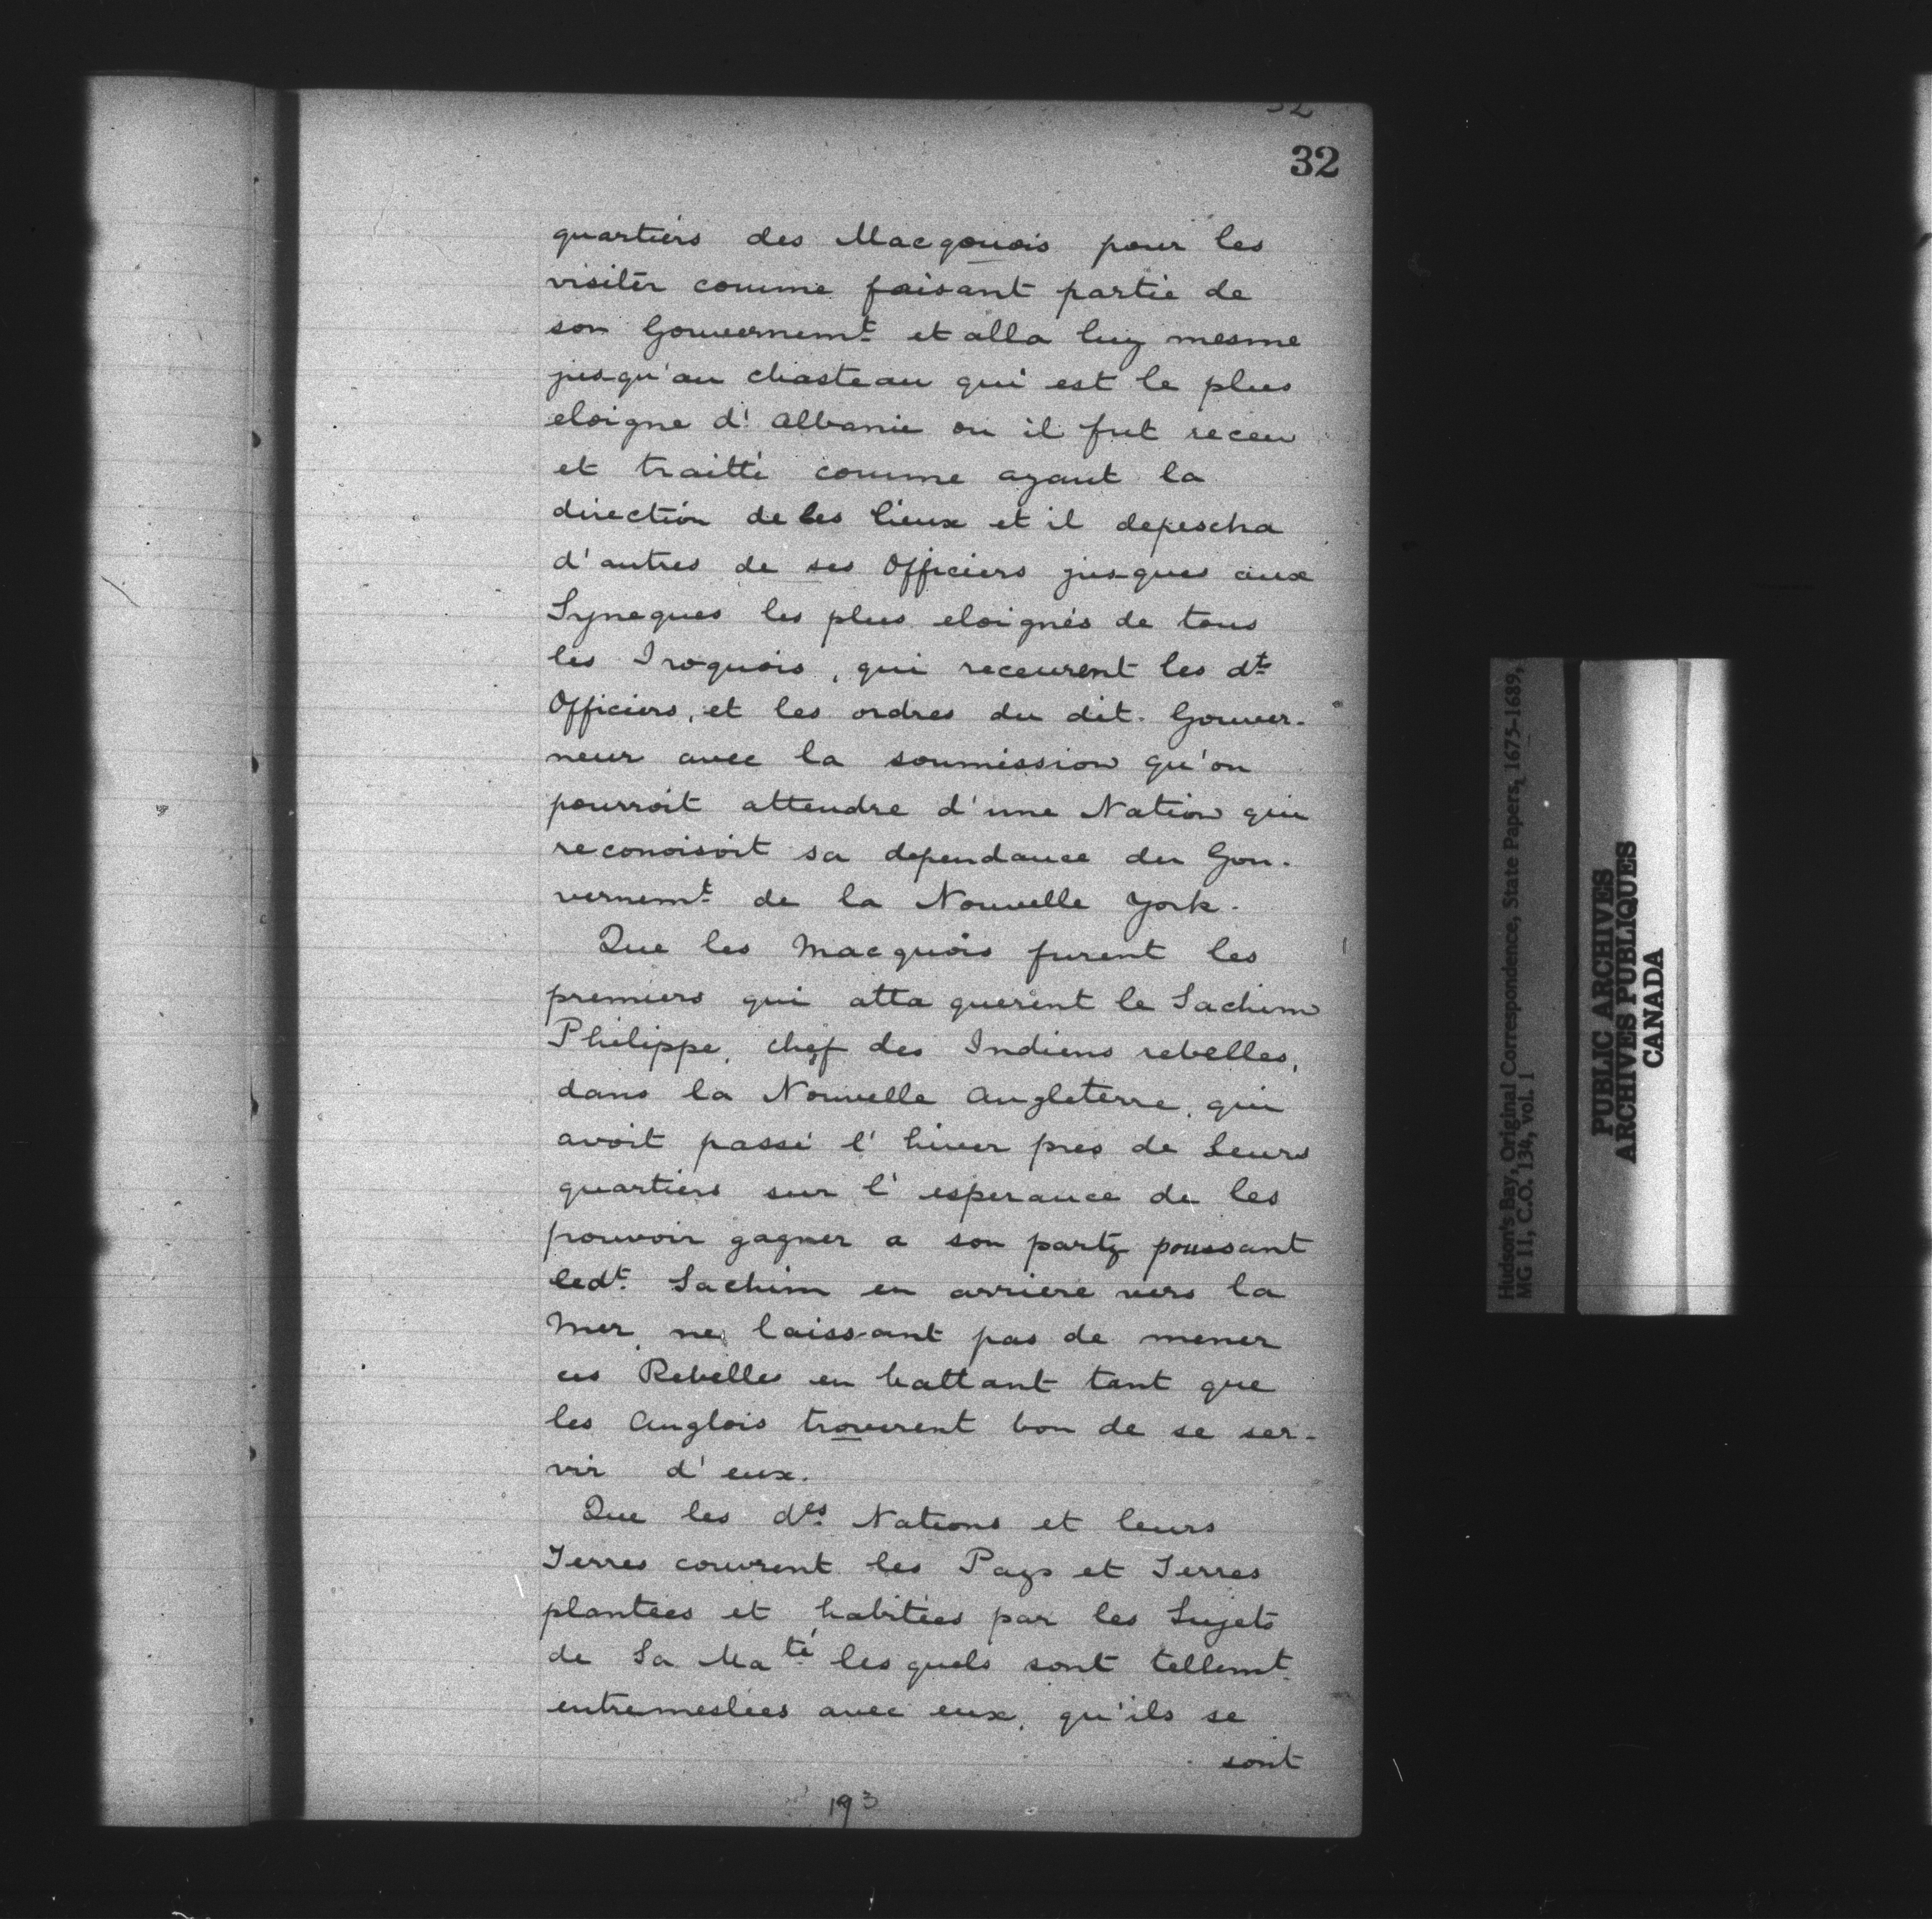 32
32
quartiers des Macqouois pour les
visiter comme faisant partie de
son Gouvernemt et alla luy mesme
jusqu'au chasteau qui est le plus
eloigne d'Albanie ou il fut receu
et traitté comme ayant la
direction de les lieux et il depescha
d'autres de ses Officiers jusques aux
Syneques les plus eloignés de tous
les Iroquois, qui receurent les dts
Officiers, et les ordres du dit. Gouver-
neur avec la soumission qu'on
pourroit attendre d'une Nation qui
reconoisoit sa dependance du Gou-
vernemt de la Nouvelle York.
Que les Macquois furent les
premiers qui attaquerent le Sachim
Philippe, chef des Indiens rebelles,
dans la Nouvelle Angleterre, qui
avoit passé l'hiver pres de Leurs
quartiers sur l'esperance de les
pouvoir gagner a son party poussant
ledt Sachim en arriere vers la
Mer, ne laissant pas de mener
ces Rebelles en battant tant que
les Anglois trouverent bon de se ser-
vir d'eux.
Que les des Nations et leurs
Terres couvrent les Pays et Terres
plantées et habitées par les Sujets
de Sa Maté lesquels sont tellemt
entremeslées avec eux, qu'ils se
sont
193
Hudson's Bay, Original Correspondence, State Papers, 1675-1689,
MG 11, C.O. 134, vol. 1
PUBLIC ARCHIVES
ARCHIVES PUBLIQUES
CANADA